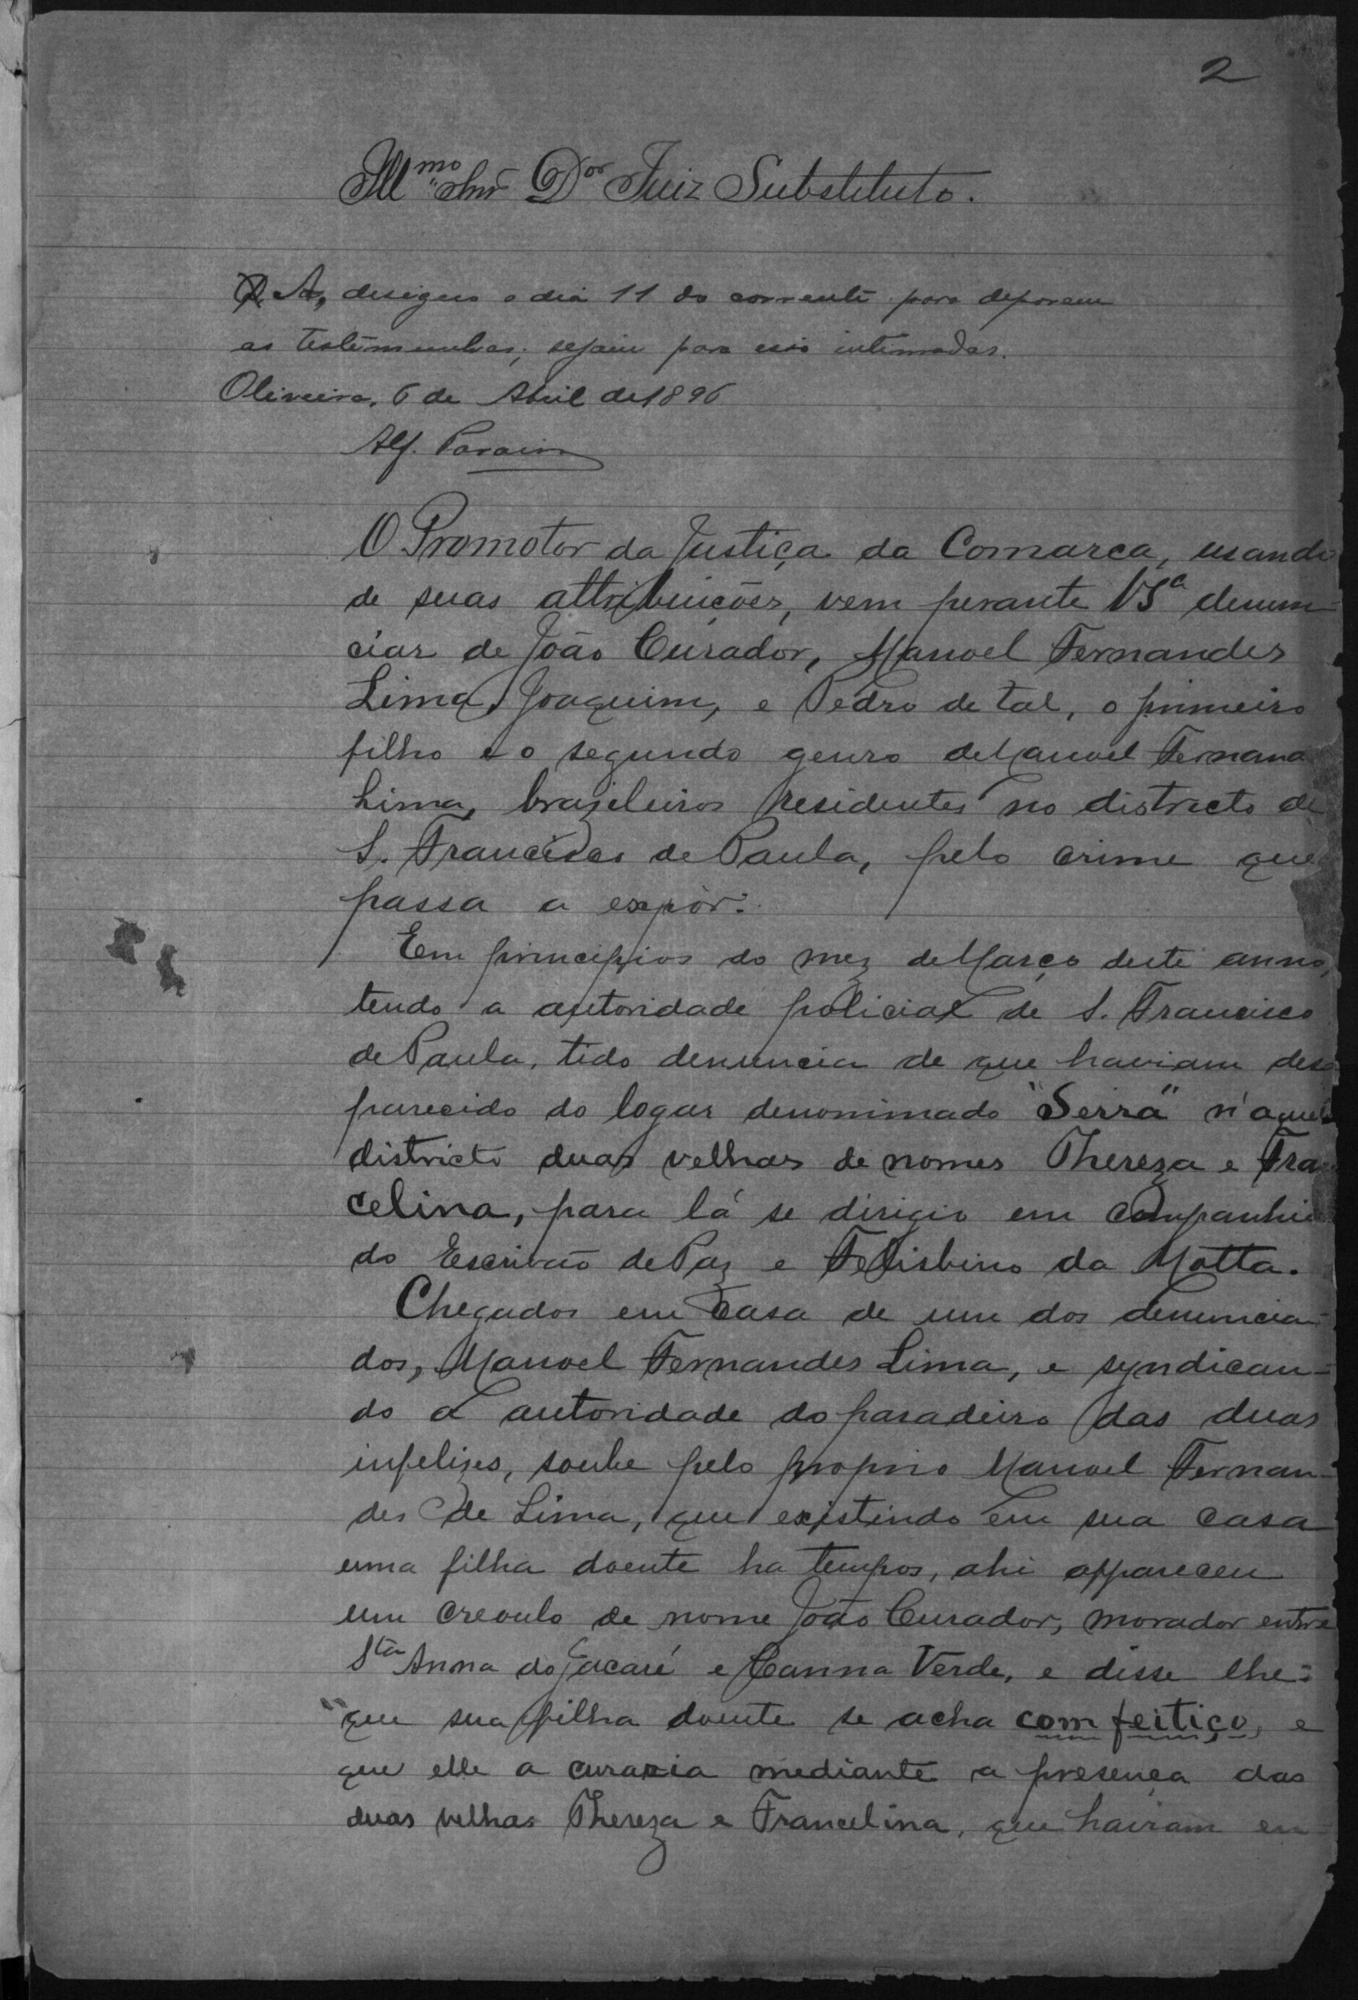 2
Illmo Snr Dor Juiz Substituto.
A, designo o dia 11 do corrente para deporem
as testemunhas; sejam para isso intimadas.
Oliveira, 6 de Abril de 1896
Alf. Paraiso
O Promotor da Justiça da Comarca, usando
de suas attribuições, vem perante VSª denun-
ciar de João Curador, Manoel Fernandes
Lima, Joaquim, e Pedro de tal, o primeiro
filho e o segundo genro de Manoel Fernand
Lima, brazileiros residentes no districto de
S. Francisco de Paula, pelo crime que
passa a expôr:
Em principios do mez de Março deste anno,
tendo a autoridade policial de S. Francisco
de Paula, tido denuncia de que haviam desa
parecido do logar denominado "Serra" n'aquel
districto duas velhas de nomes Thereza e Fran
celina, para lá se dirigio em companhia
do Escrivão de Paz e Felisbino da Motta.
Chegados em casa de um dos denuncia-
dos, Manoel Fernandes Lima, e syndican-
do a autoridade do paradeiro das duas
infelizes, soube pelo proprio Manoel Fernan-
des de Lima, que existindo em sua casa
uma filha doente ha tempos, ahi appareceu
um creoulo de nome João Curador, morador entre
Sta Anna do Jacaré e Canna Verde, e disse lhe:
"que sua filha doente se acha com feitiço, e
que elle a curaria mediante a presença das
duas velhas Thereza e Francelina, que haviam en-